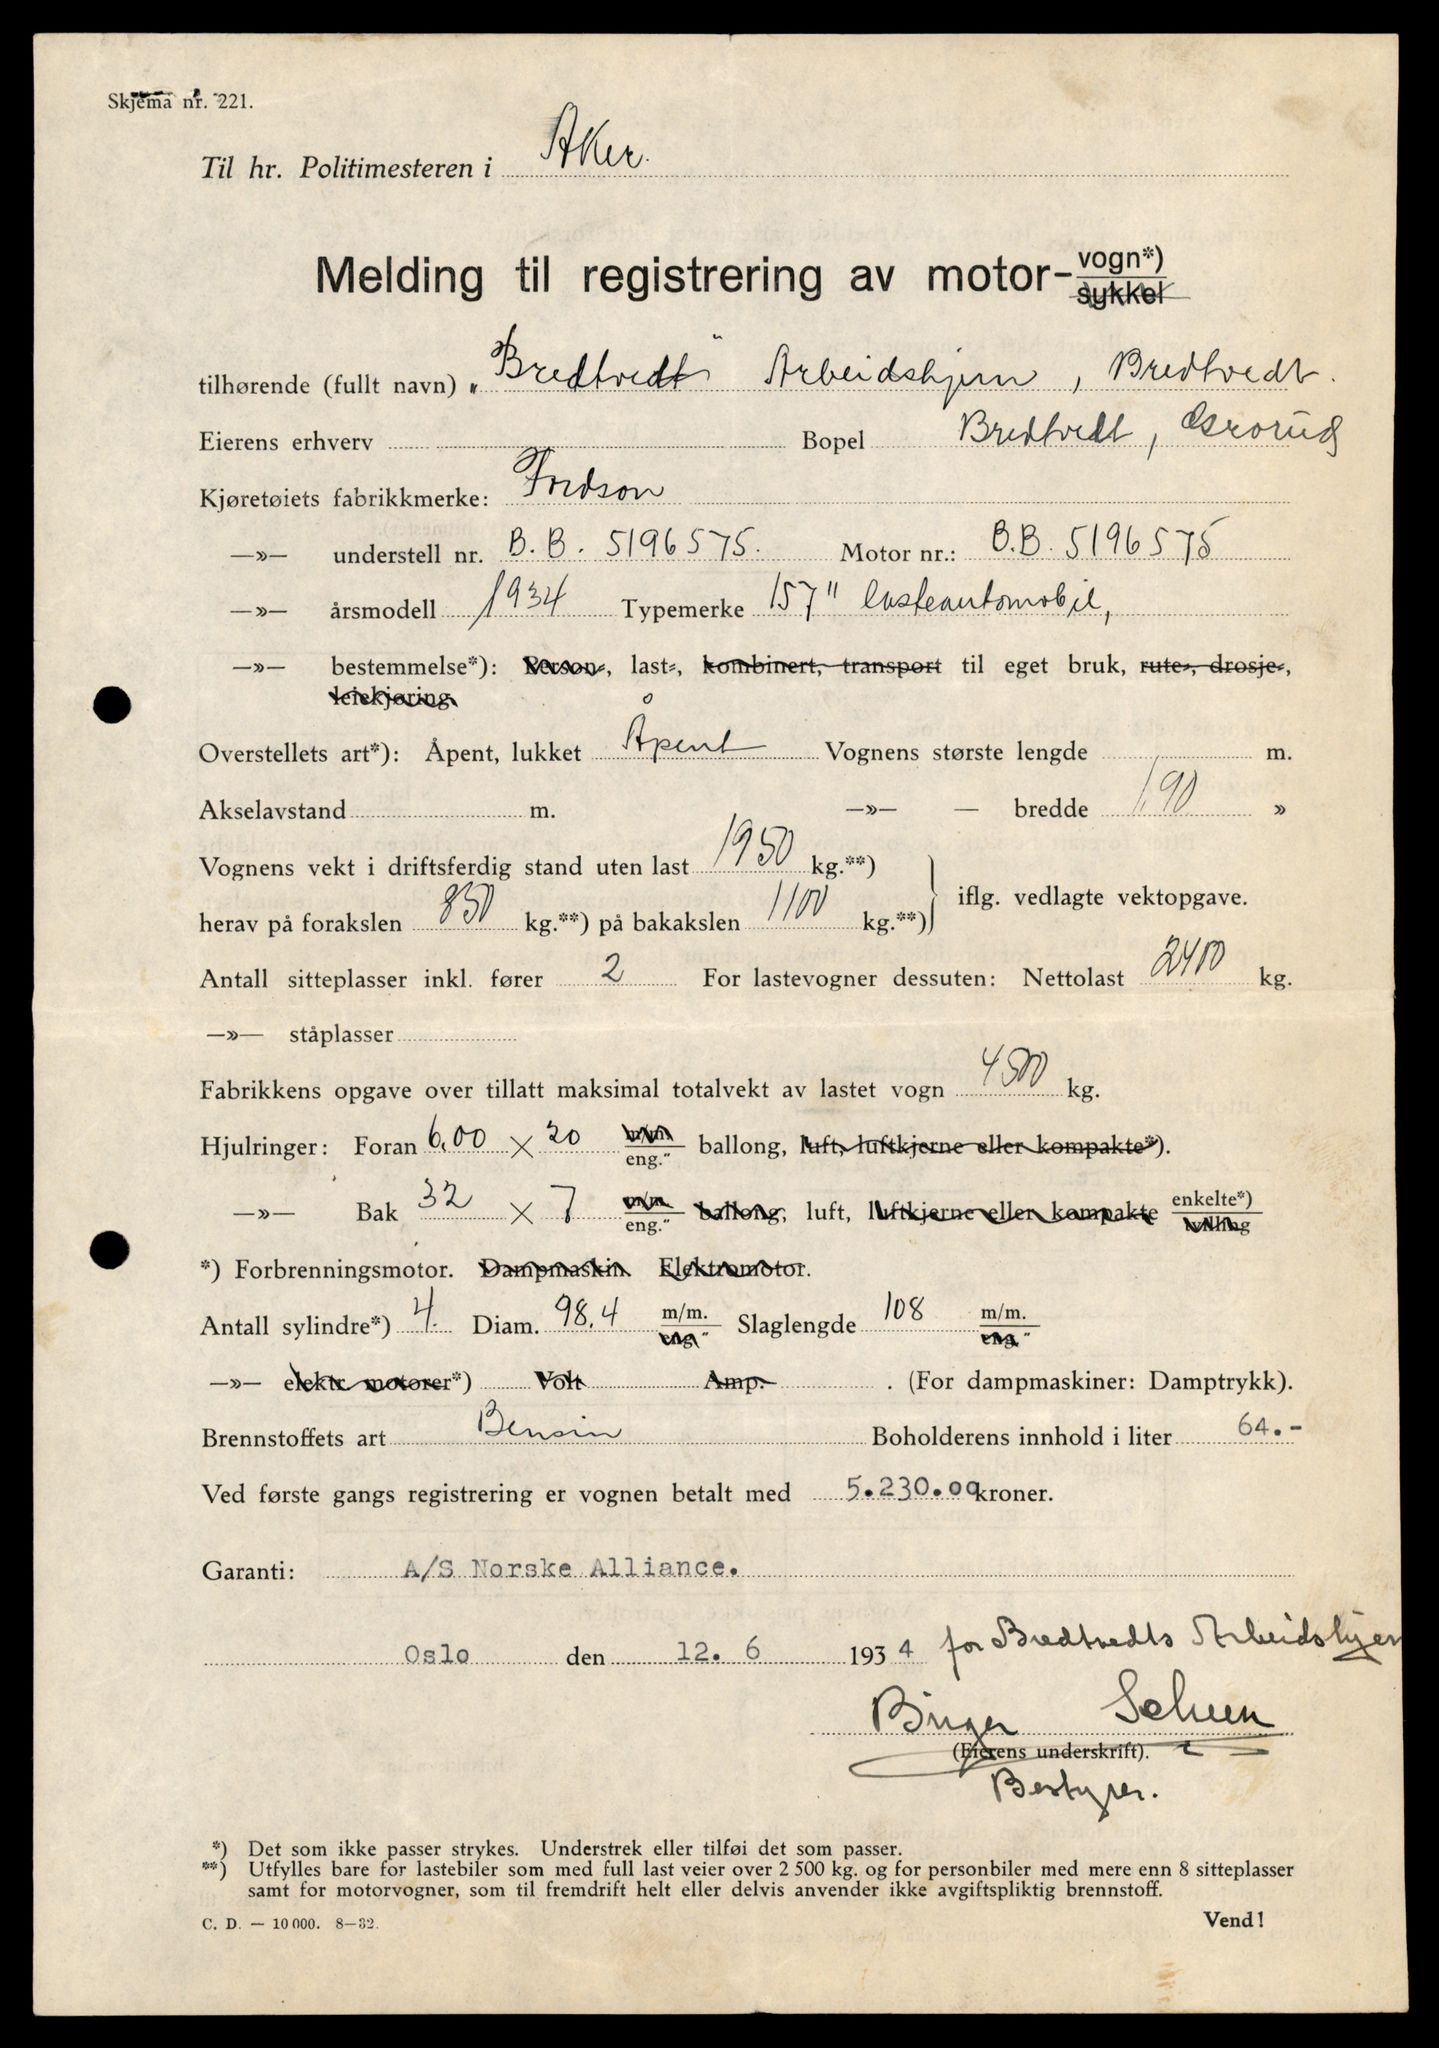 Skjema nr. 221.
Til hr. Politimesteren i Aker.
Melding til registrering av motor- vogn*)
sykkel
tilhørende (fullt navn) "Bredtvedt" Arbeidshjem, Bredtvedt.
Eierens erhverv Bopel Bredtvedt, Grorud
Kjøretøiets fabrikkmerke: Fordson
—»— understell nr. B.B. 5196575. Motor nr.: B.B. 5196575
—»— årsmodell 1934 Typemerke 157" lasteautomobil,
—»— bestemmelse*): Person-, last-, kombinert, transport til eget bruk, rute-, drosje-,
leiekjøring.
Overstellets art*): Åpent, lukket Åpent Vognens største lengde m.
Akselavstand m. —»— — bredde 1,90 »
Vognens vekt i driftsferdig stand uten last 1950 kg.**)
herav på forakslen 850 kg.**) på bakakslen 1100 kg.**) iflg. vedlagte vektopgave.
Antall sitteplasser inkl. fører 2 For lastevogner dessuten: Nettolast 2400 kg.
—»— ståplasser
Fabrikkens opgave over tillatt maksimal totalvekt av lastet vogn 4500 kg.
Hjulringer: Foran 6,00 × 20 m/m. eng." ballong, luft, luftkjerne eller kompakte*).
—»— Bak 32 × 7 m/m. eng." ballong, luft, luftkjerne eller kompakte enkelte*) tvilling
*) Forbrenningsmotor. Dampmaskin. Elektromotor.
Antall sylindre*) 4. Diam. 98.4 m/m. eng." Slaglengde 108 m/m. eng."
—»— elektr. motorer*) Volt Amp. . (For dampmaskiner: Damptrykk).
Brennstoffets art Bensin Boholderens innhold i liter 64.-
Ved første gangs registrering er vognen betalt med 5.230.00 kroner.
Garanti: A/S Norske Alliance.
Oslo den 12. 6 1934 for Bredtvedts Arbeidshjem
Birger
(Eierens underskrift).
Bestyrer.
*) Det som ikke passer strykes. Understrek eller tilføi det som passer.
**) Utfylles bare for lastebiler som med full last veier over 2 500 kg. og for personbiler med mere enn 8 sitteplasser
samt for motorvogner, som til fremdrift helt eller delvis anvender ikke avgiftspliktig brennstoff.
C. D. — 10 000. 8—32. Vend!